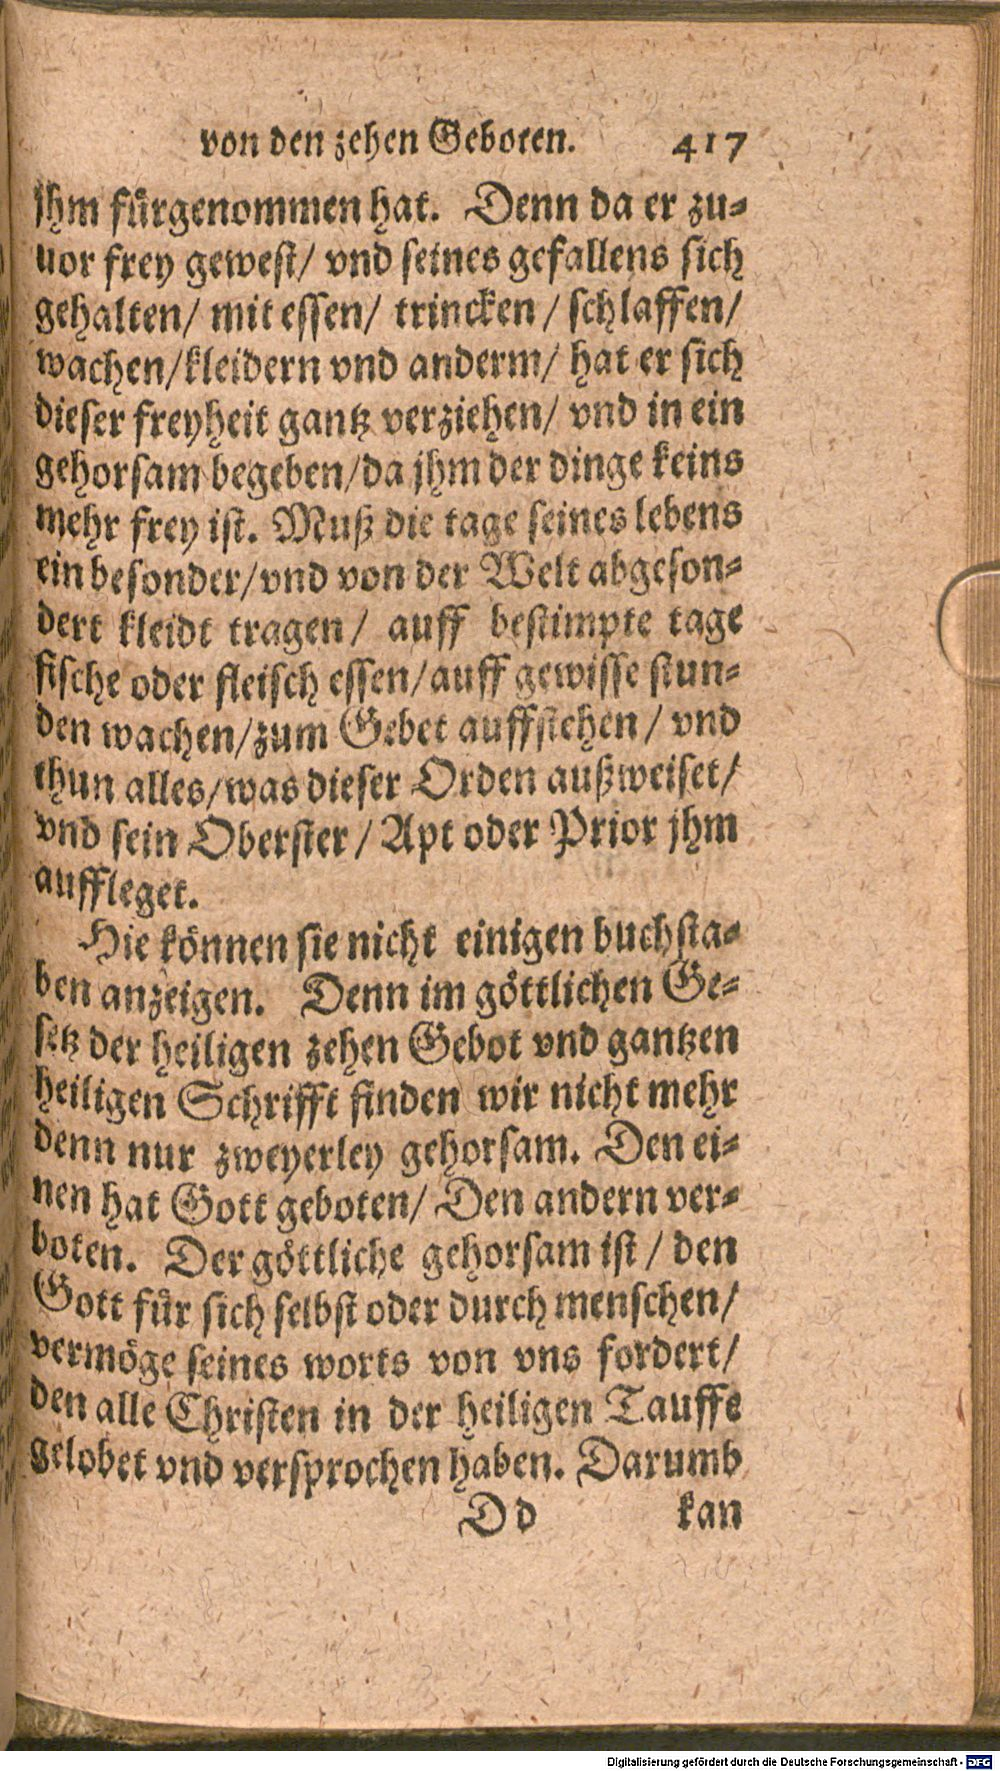 von den zehen Geboten. 417
jhm fürgenommen hat. Denn da er zu-
uor frey gewest/ vnd seines gefallens sich
gehalten/ mit essen/ trincken / schlaffen/
wachen/kleidern vnd anderm/ hat er sich
dieser freyheit gantz verziehen/ vnd in ein
gehorsam begeben/da jhm der dinge keins
mehr frey ist. Muß die tage seines lebens
ein besonder/vnd von der Welt abgeson-
dert kleidt tragen/ auff bestimpte tage
fische oder fleisch essen/auff gewisse stun-
den wachen/zum Gebet auffstehen / vnd
thun alles/was dieser Orden außweiset/
vnd sein Oberster / Apt oder Prior jhm
auffleget.
Hie können sie nicht einigen buchsta-
ben anzeigen. Denn im göttlichen Ge-
setz der heiligen zehen Gebot vnd gantzen
heiligen Schrifft finden wir nicht mehr
denn nur zweyerley gehorsam. Den ei-
nen hat Gott geboten/ Den andern ver-
boten. Der göttliche gehorsam ist / den
Gott für sich selbst oder durch menschen/
vermöge seines worts von vns fordert/
den alle Christen in der heiligen Tauffe
gelobet vnd versprochen haben. Darumb
Dd kan
Digitalisierung gefördert durch die Deutsche Forschungsgemeinschaft - DFG